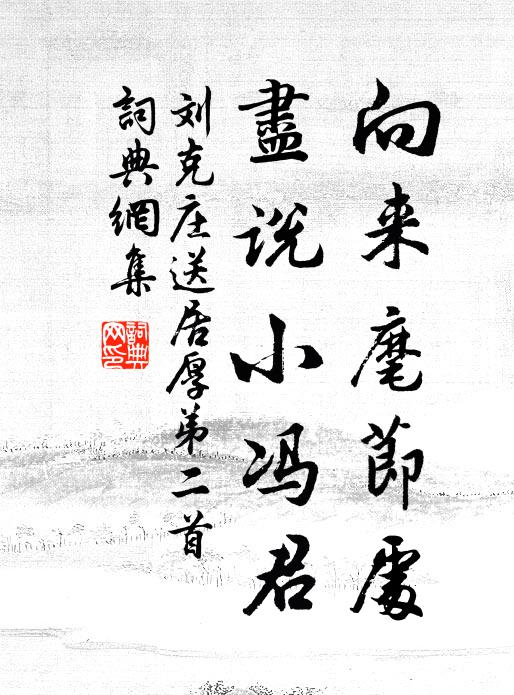 向来麾節處
盡説小冯君
刘克庄送居厚弟二首
詞典網集
詞典网印